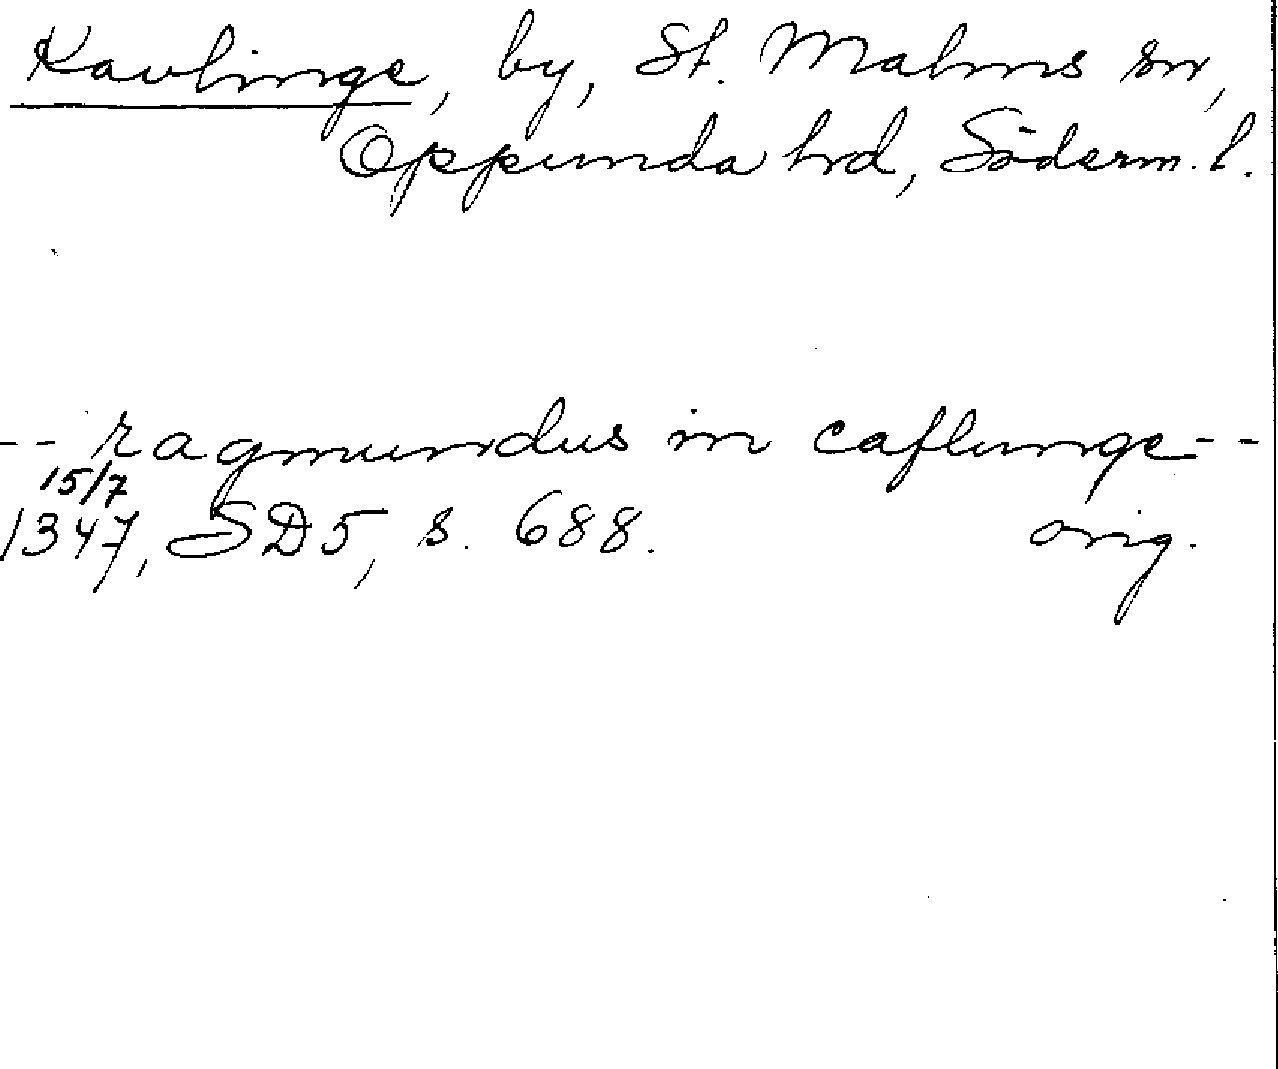 Kavlinge, by, St. Malms sn,
Oppunda hrd, Söderm. l.
-- ragmundus in caflunge --
15/7
1347, SD5, s. 688. orig.